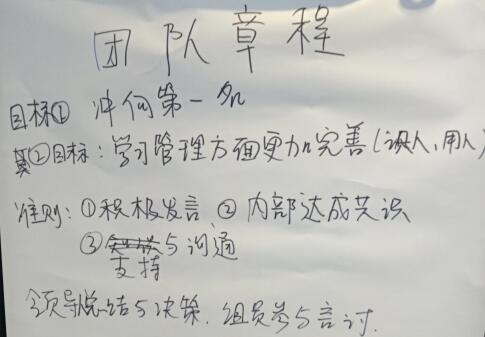 团队章程
目标① 冲向第一名
②目标：学习管理方面更加完善(识人，用人)
准则：①积极发言 ②内部达成共识
③与沟通
支持
领导总结与决策．组员参与言讨．